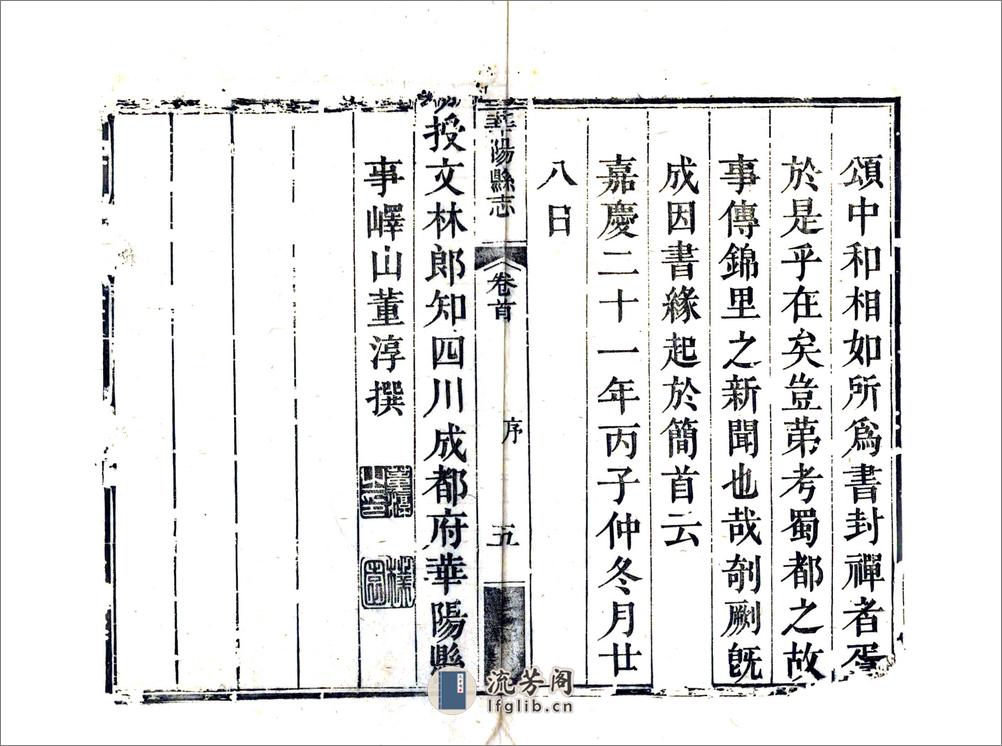 頌中和相如所爲書封禪者胥
於是乎在矣豈第考蜀都之故
事傳錦里之新聞也哉剞劂旣
成因書緣起於簡首云
嘉慶二十一年丙子仲冬月廿
八日
華陽縣志
卷首
序
五
授文林郎知四川成都府華陽縣
事嶧山董淳撰
董淳之印
流芳阁
lfglib.cn